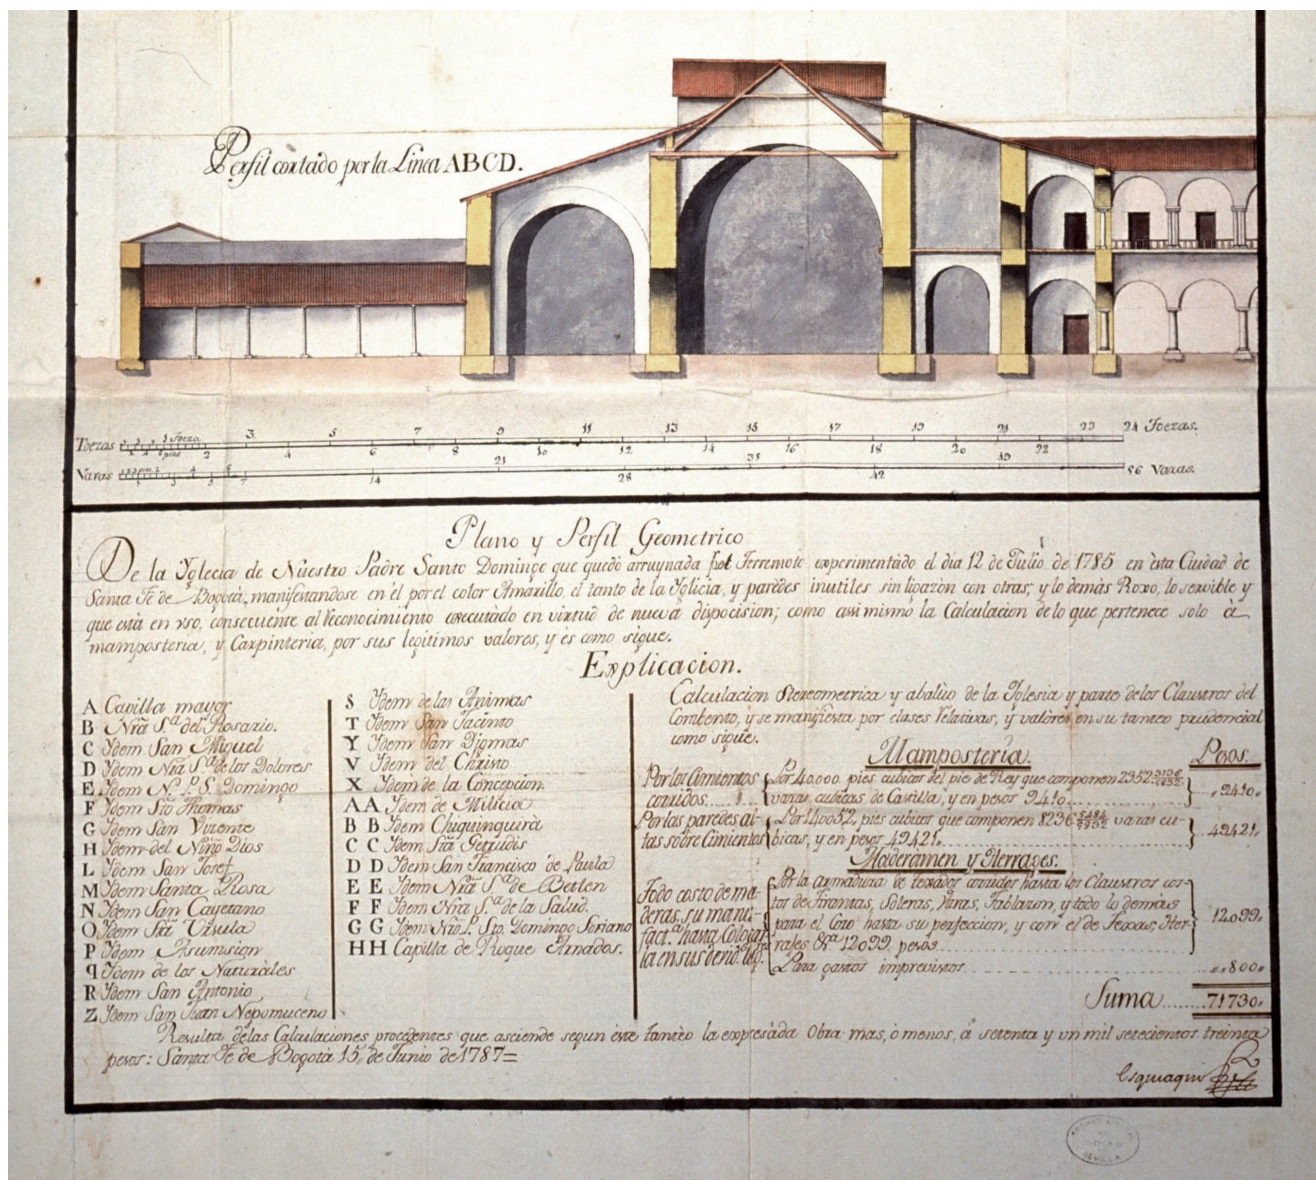 Perfil cortado por la Linea ABCD.
Toezas 1 Toeza 3 5 7 9 11 13 15 17 19 21 23 24 Toezas.
6 pies 2 4 6 8 10 12 14 16 18 20 22
21 35 49
Varas 1 3 7 14 28 42 56 Varas.
Plano y Perfil Geometrico
De la Yglecia de Nuestro Padre Santo Domingo que quedó arruynada Terremoto experimentado el dia 12 de Julio de 1785 en esta Ciudad de
Santa Fe de Bogotà, manifestandose en él por el color Amarillo, el tanto de la Yglicia, y paredes inutiles sin ligazon con otras, y lo demàs Roxo, lo servible y
que està en vso, consecuente al Reconocimiento executado en virtud de nueva dispocision; como assi mismo la Calculacion de lo que pertenece solo à
mamposteria, y Carpinteria, por sus legitimos valores, y es como sigue.
Explicacion.
A Capilla mayor
B Nrã S.ª del Rosario.
C Ydem San Miguel
D Ydem Nrã S.ª de los Dolores
E Ydem N. P. S. Domingo
F Ydem Sto Thomas
G Ydem San Vizente
H Ydem del Niño Dios
L Ydem San Josef
M Ydem Santa Rosa
N Ydem San Cayetano
O Ydem Stã Vrsula
P Ydem Asumsion
q Ydem de los Naturàles
R Ydem San Antonio
Z Ydem San Juan Nepomuceno
S Ydem de las Animas
T Ydem San Jacinto
Y Ydem San Digmas
V Ydem del Christo
X Ydem de la Concepcion.
AA Ydem de Milicia
BB Ydem Chiquinquirà
CC Ydem Stã Getrudis
DD Ydem San Francisco de Paula
EE Ydem Nrã S.ª de Betlen
FF Ydem Nrã S.ª de la Salud.
GG Ydem Nro. P. Sto. Domingo Soriano
HH Capilla de Roque Amados.
Calculacion Stereometrica y abalùo de la Yglesia y parte de los Claustros del
Combento, y se manifiesta por clases relativas, y valores en su tanteo prudencial
como sigue.
Mamposteria. Pesos.
Por los Cimientos corridos..... Por 40000. pies cubicos del pie de Rey que componen 2352
varas cubicas de Castilla, y en pesos 9410 ........ 9410
Por las paredes altas sobre Cimientos Por 140052, pies cubicos que componen 8236 varas cu-
bicas, y en pesos 49421. 49421
Maderamen y Herrages.
Todo costo de maderas, su manufact.ª hasta Colocarla en sus
Por la armadura de texados corridos hasta los Claustros cos-
tor de Tirantas, Soleras, Varas, Tablazon, y todo lo demàs
para el Coro hasta su perfeccion, y con el de Texas, Her-
rales &.ª 12099 pesos 12099
Para gastos imprevistos .......... 800
Suma ...... 71730
Resulta de las Calculaciones procedentes que asciende segun este tantèo la expresada Obra mas, o menos, à setenta y un mil setecientos treinta
pesos: Santa Fe de Bogotà 15, de Junio de 1787=
Esquiaqui
SEVILLA